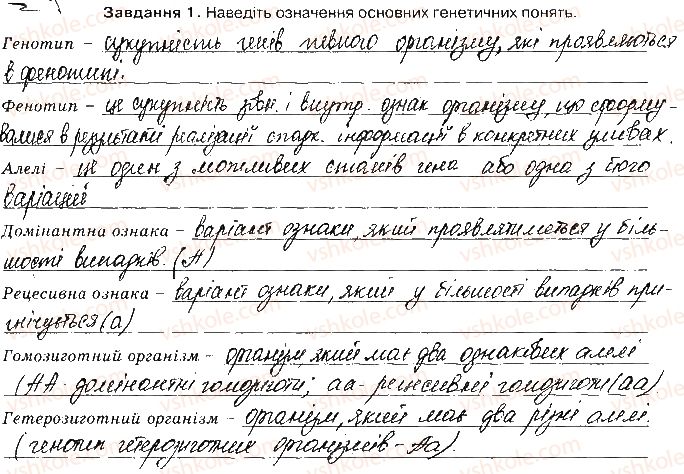 Завдання 1. Наведіть означення основних генетичних понять.
Генотип – сукупність генів певного організму, які проявляються
в фенотипі.
Фенотип – це сукупність зовн. і внутр. ознак організму, що сформу-
валися в результаті реалізації спадк. інформації в конкретних умовах.
Алелі – це один з можливих станів гена або одна з його
варіацій
Домінантна ознака – варіант ознаки, який проявлятиметься у біль-
шості випадків. (А)
Рецесивна ознака – варіант ознаки, який у більшості випадків при-
гнічується (а)
Гомозиготний організм – організм, який має два однакових алелі
(АА - домінантні гомозиготи; аа - рецесивні гомозиготи (аа)
Гетерозиготний організм – організм, який має два різні алелі.
(генотип гетерозиготних організмів - Аа).